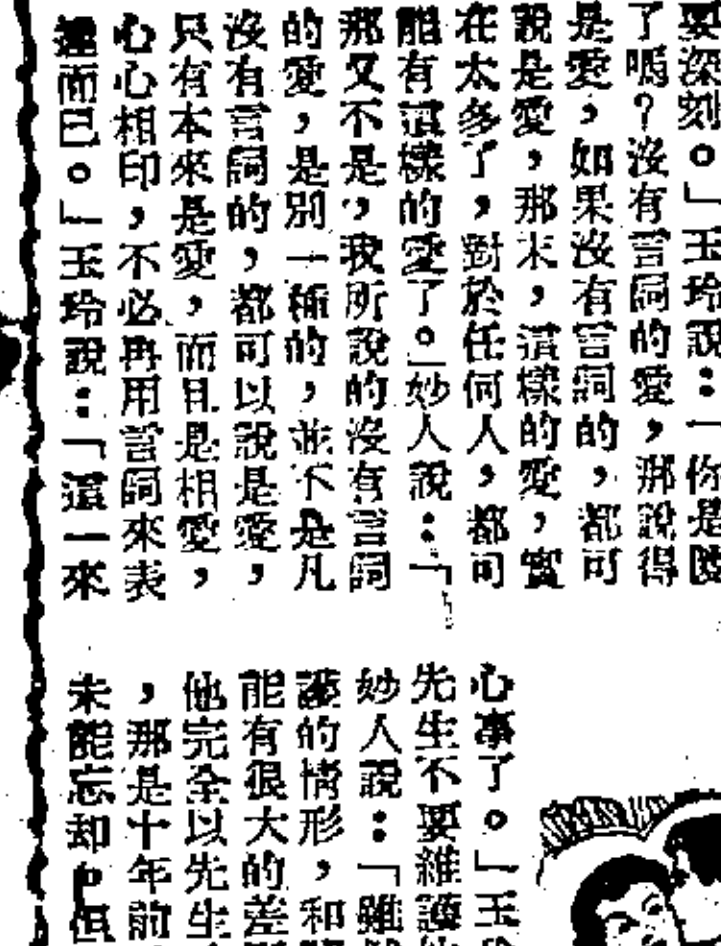 要深刻。」玉玲說：「你是
了嗎？沒有言詞的愛，那說得
是愛，如果沒有言詞的，都可
說是愛，那末，這樣的愛，實
在太多了，對於任何人，都可
能有這樣的愛了。」妙人說：「
那又不是，我所說的沒有言詞
的愛，是別一種的，並不是凡
沒有言詞的，都可以說是愛，
只有本來是愛，而且是相愛，
心心相印，不必再用言詞來表
達而已。」玉玲說：「這一來
心事了。」玉
先生不要維護
妙人說：「雖
護的情形，和
能有很大的差
他完全以先生
，那是十年前
未能忘却，但